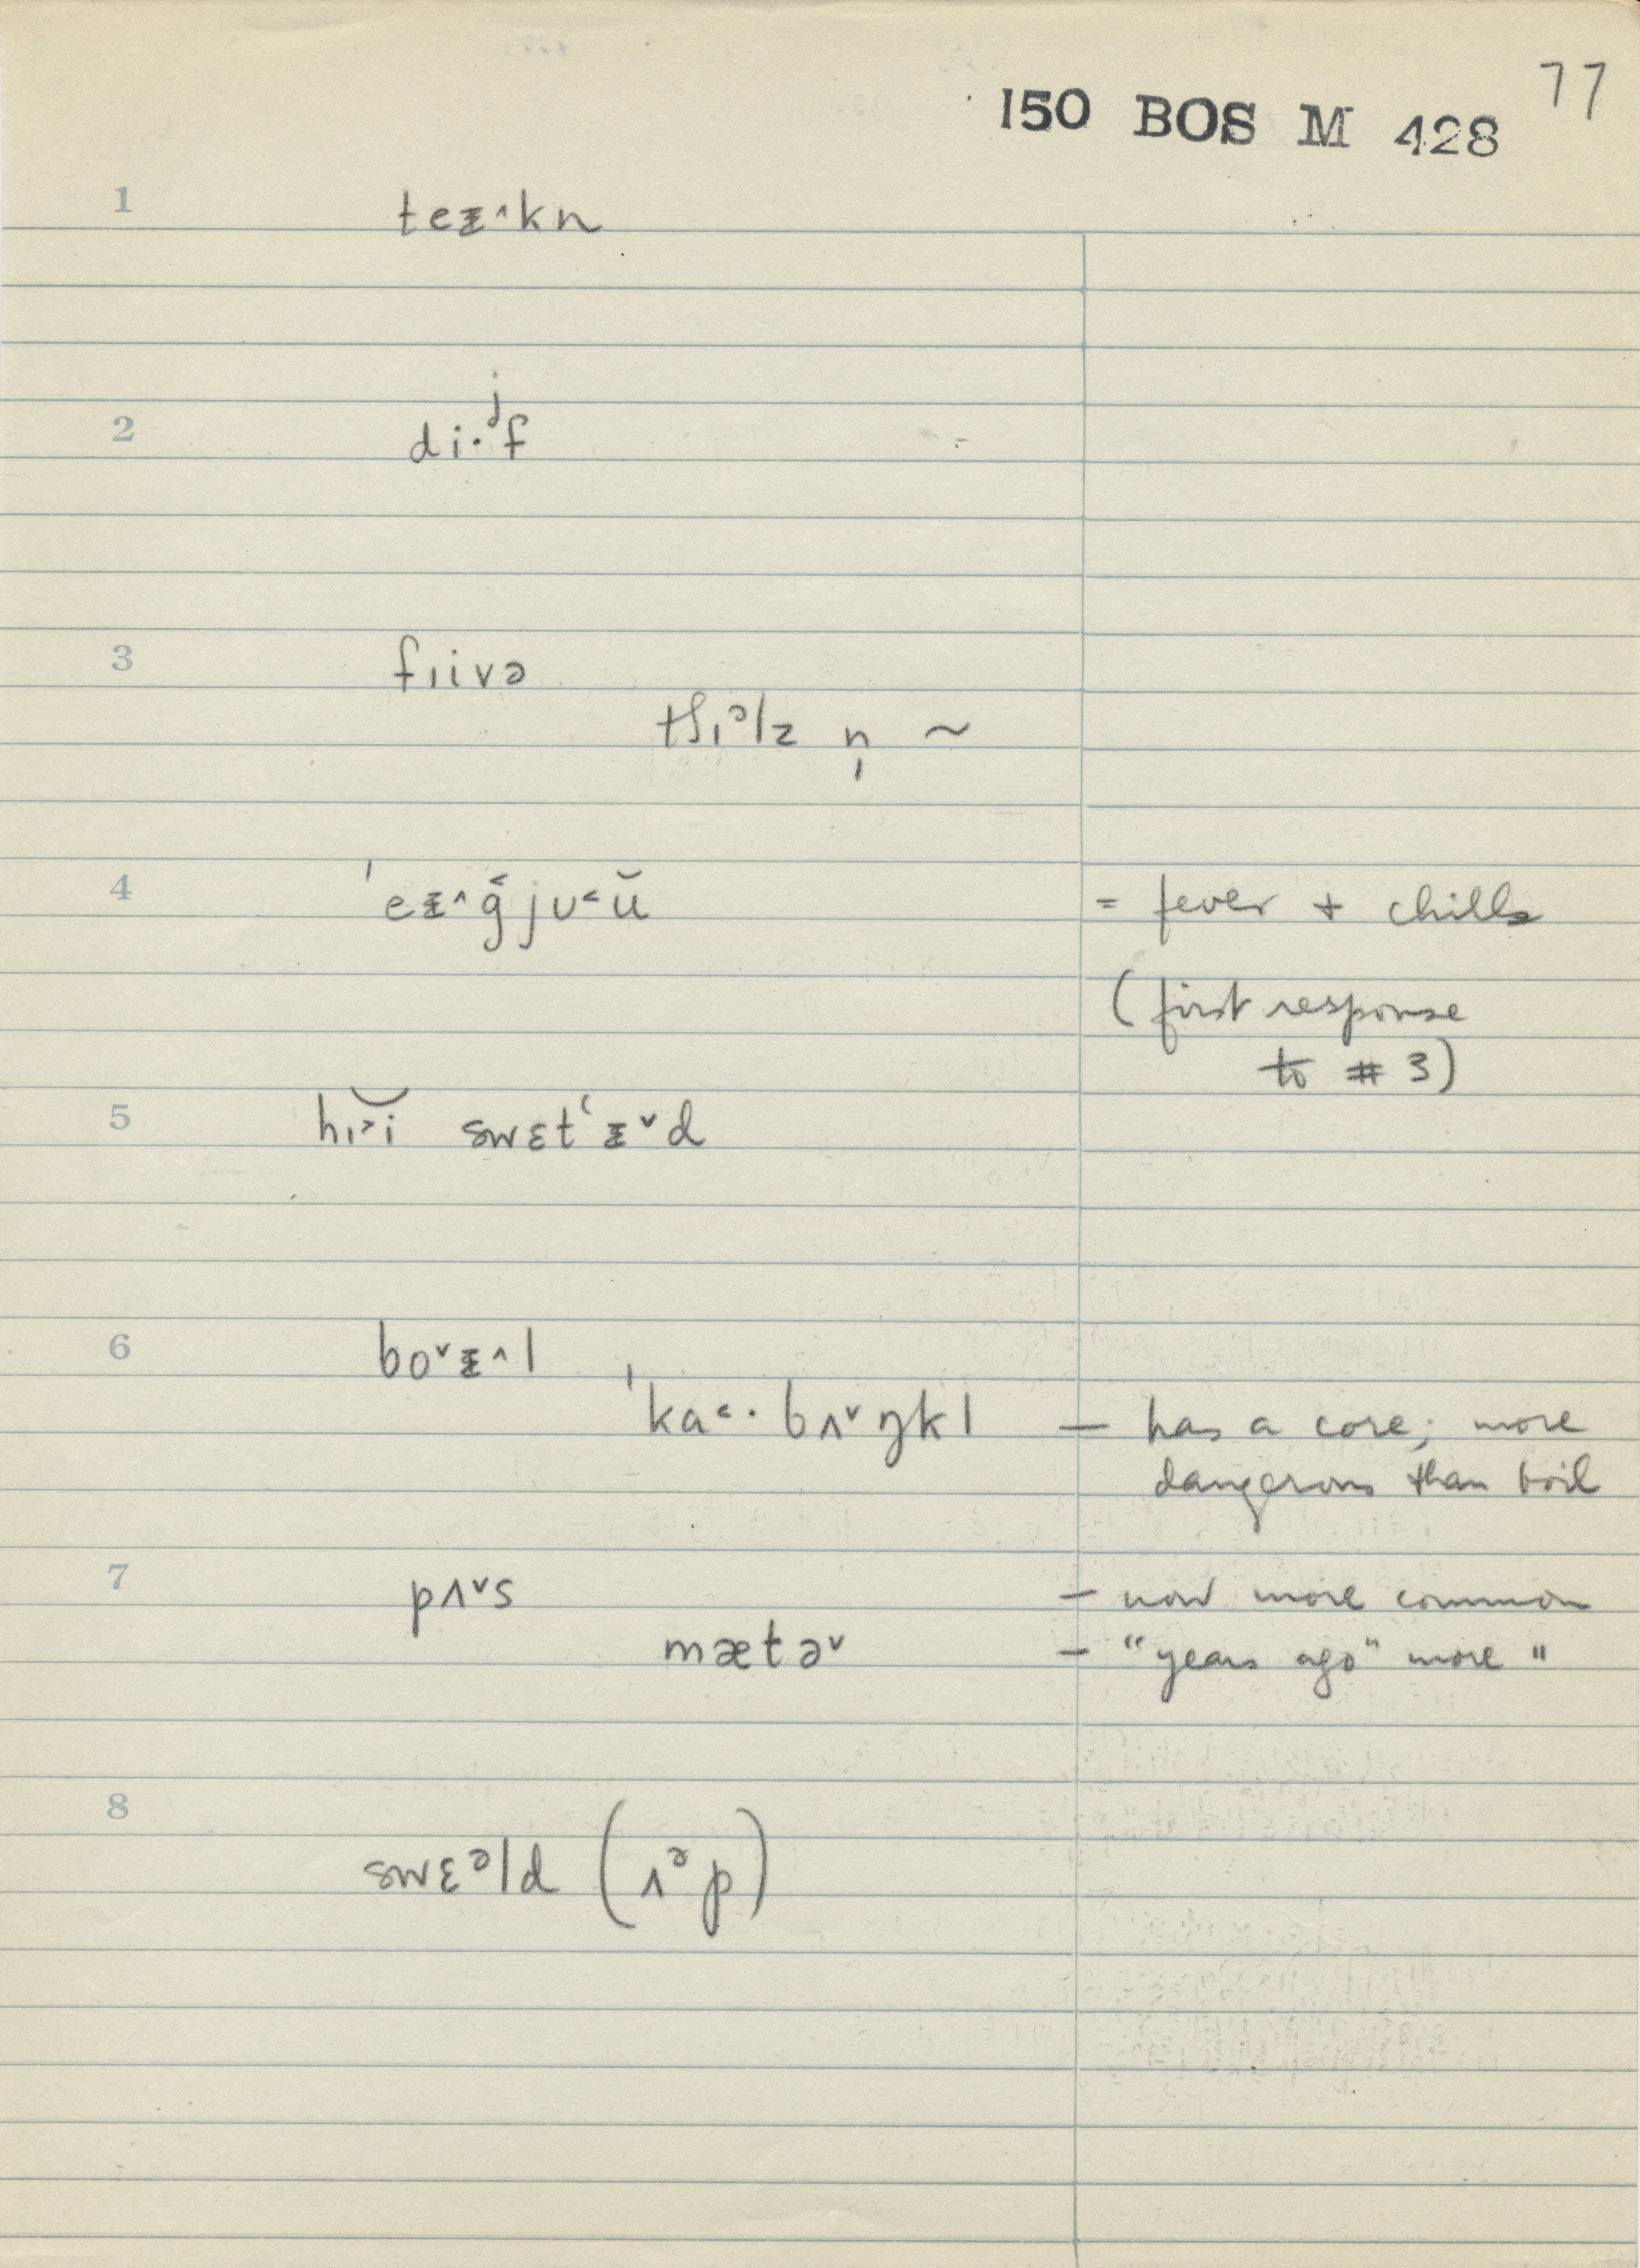 77
150 BOS M 428
1 teᵻ^kn
2 di·ʲf
3 fɪivə
tʃɪᵊlz n̩ ~
4 ˈeᵻ^g̑jʊ˂ŭ = fever + chills
(first response
to # 3)
5 hɪ˃͝i swɛtʻᵻˇd
6 boˇᵻ^l
ˈka˂· bʌˇŋkl — has a core; more
dangerous than boil
7 pʌˇs – now more common
mætəˇ – "years ago" more "
8 swɛᵊld (ʌᵊp)